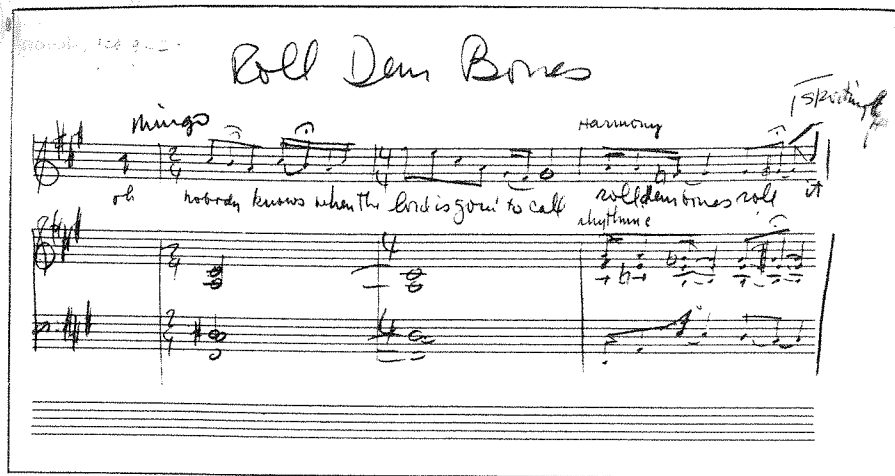 Roll Dem Bones
Mingo
Harmony
oh nobody knows when the lord is goin' to call roll dem bones roll it
rhythm